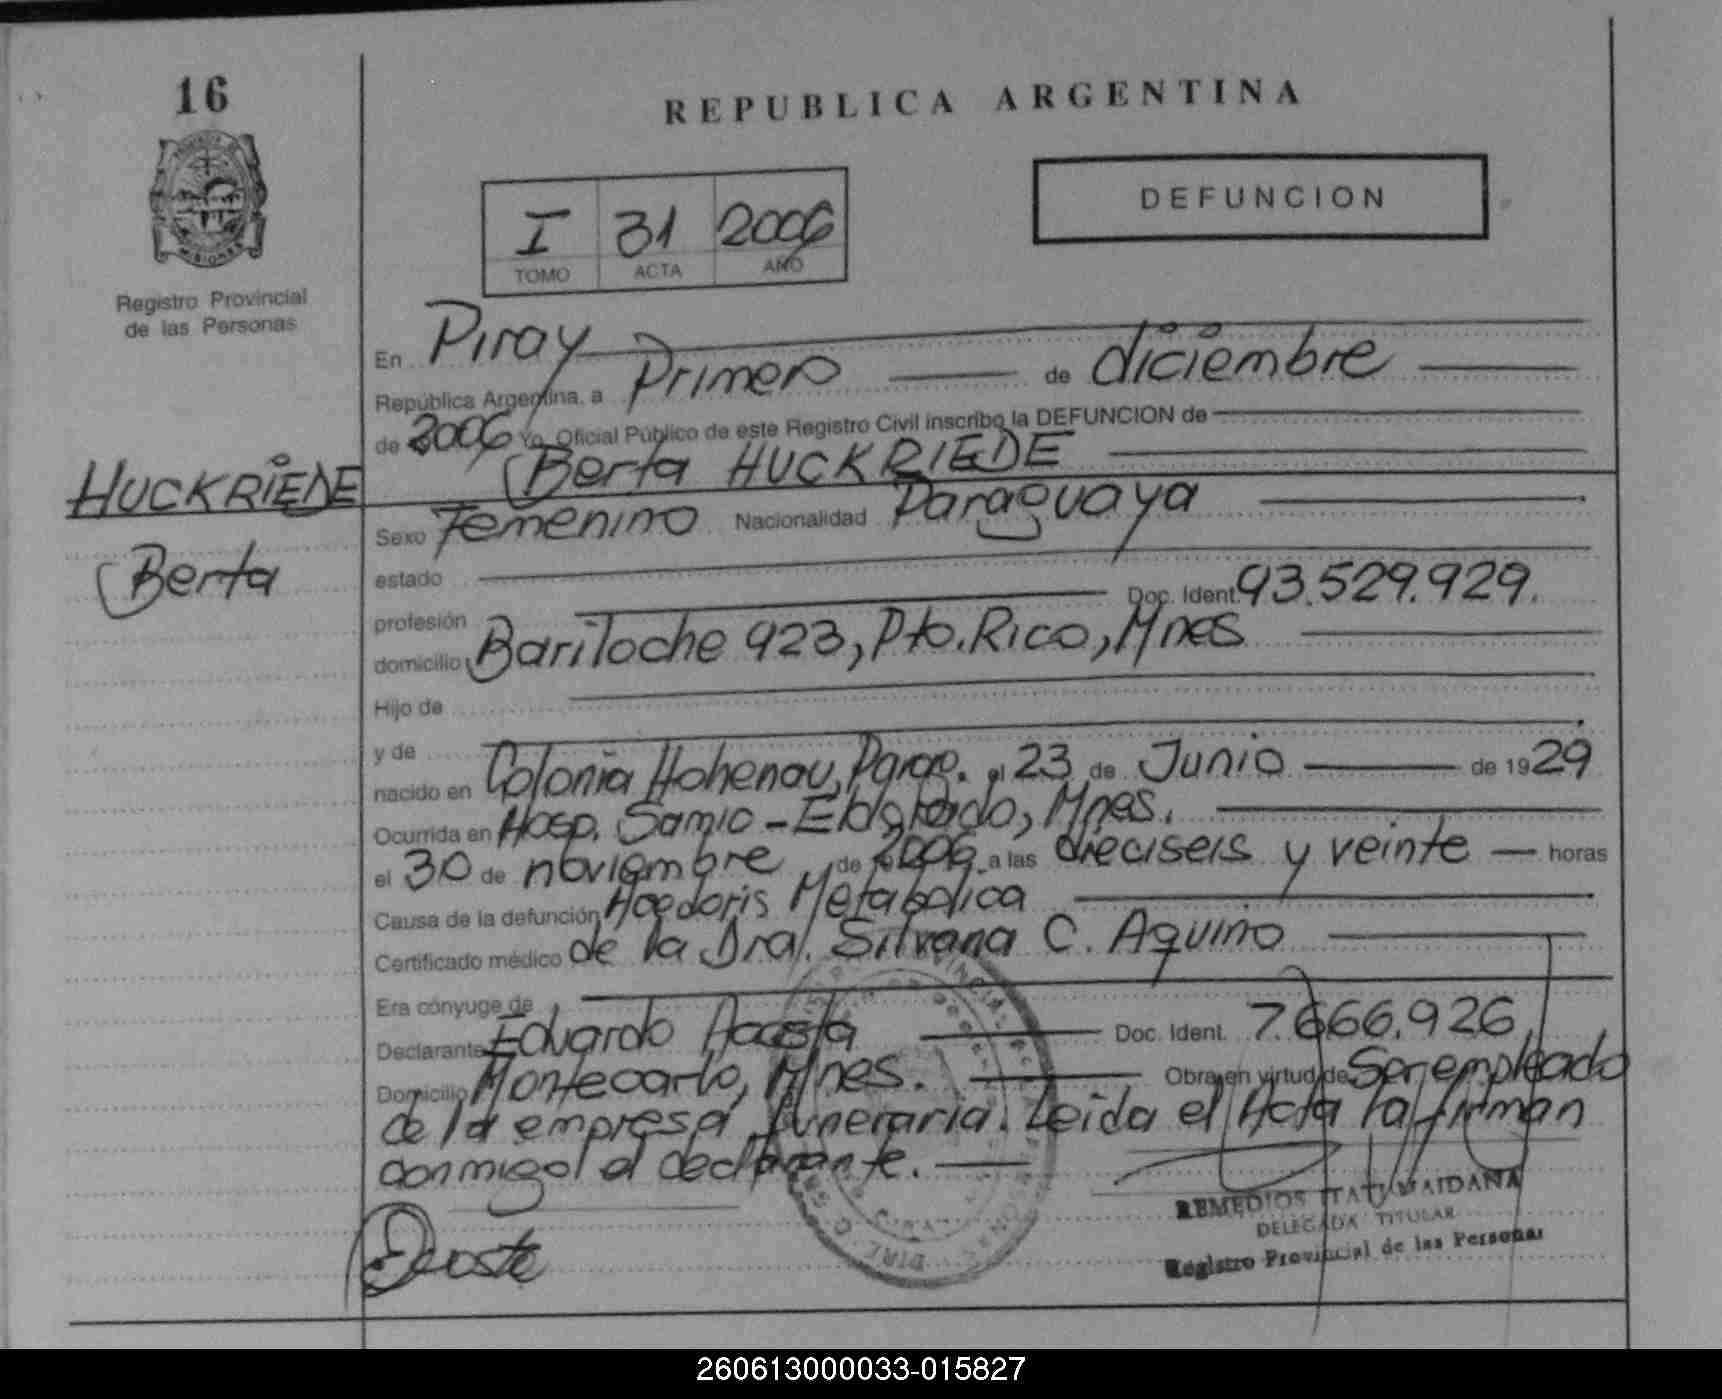 16
REPUBLICA ARGENTINA
DEFUNCION
I 31 2006
TOMO ACTA AÑO
MISIONES
Registro Provincial
de las Personas
En Piray
República Argentina, a Primero de diciembre
de 2006 Yo, Oficial Público de este Registro Civil inscribo la DEFUNCION de
Berta HUCKRIEDE
HUCKRIEDE
Berta
Sexo Femenino Nacionalidad Paraguaya
estado
profesión Doc. Ident. 93.529.929.
domicilio Bariloche 923, Pto. Rico, Mnes
Hijo de
y de
nacido en Colonia Hohenau, Parag. el 23 de Junio de 1929
Ocurrida en Hosp. Samic - Eldorado, Mnes.
el 30 de noviembre de 2006 a las dieciseis y veinte horas
Causa de la defunción Metabolica
Certificado médico de la Dra. Silvana C. Aquino
Era cónyuge de
Declarante Eduardo Acosta Doc. Ident. 7.666.926
Domicilio Montecarlo, Mnes. Obra en virtud de Ser empleado
de la empresa funeraria. Leida el Acta la firman
conmigo el declarante.
REMEDIOS ITATI MAIDANA
DELEGADA TITULAR
Registro Provincial de las Personas
260613000033-015827